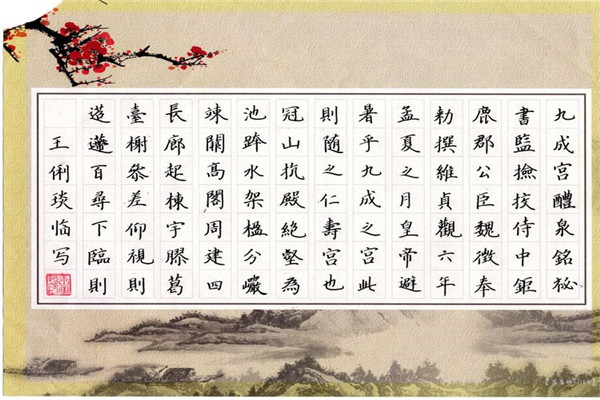 九成宫醴泉銘祕
書監撿挍侍中鉅
鹿郡公臣魏徵奉
勑撰維貞觀六年
孟夏之月皇帝避
暑乎九成之宫此
則随之仁壽宫也
冠山抗殿絶壑為
池跨水架楹分巖
竦闕高閣周建四
長廊起棟宇膠葛
臺榭叅差仰視則
迢遰百尋下臨則
王俐琰临写